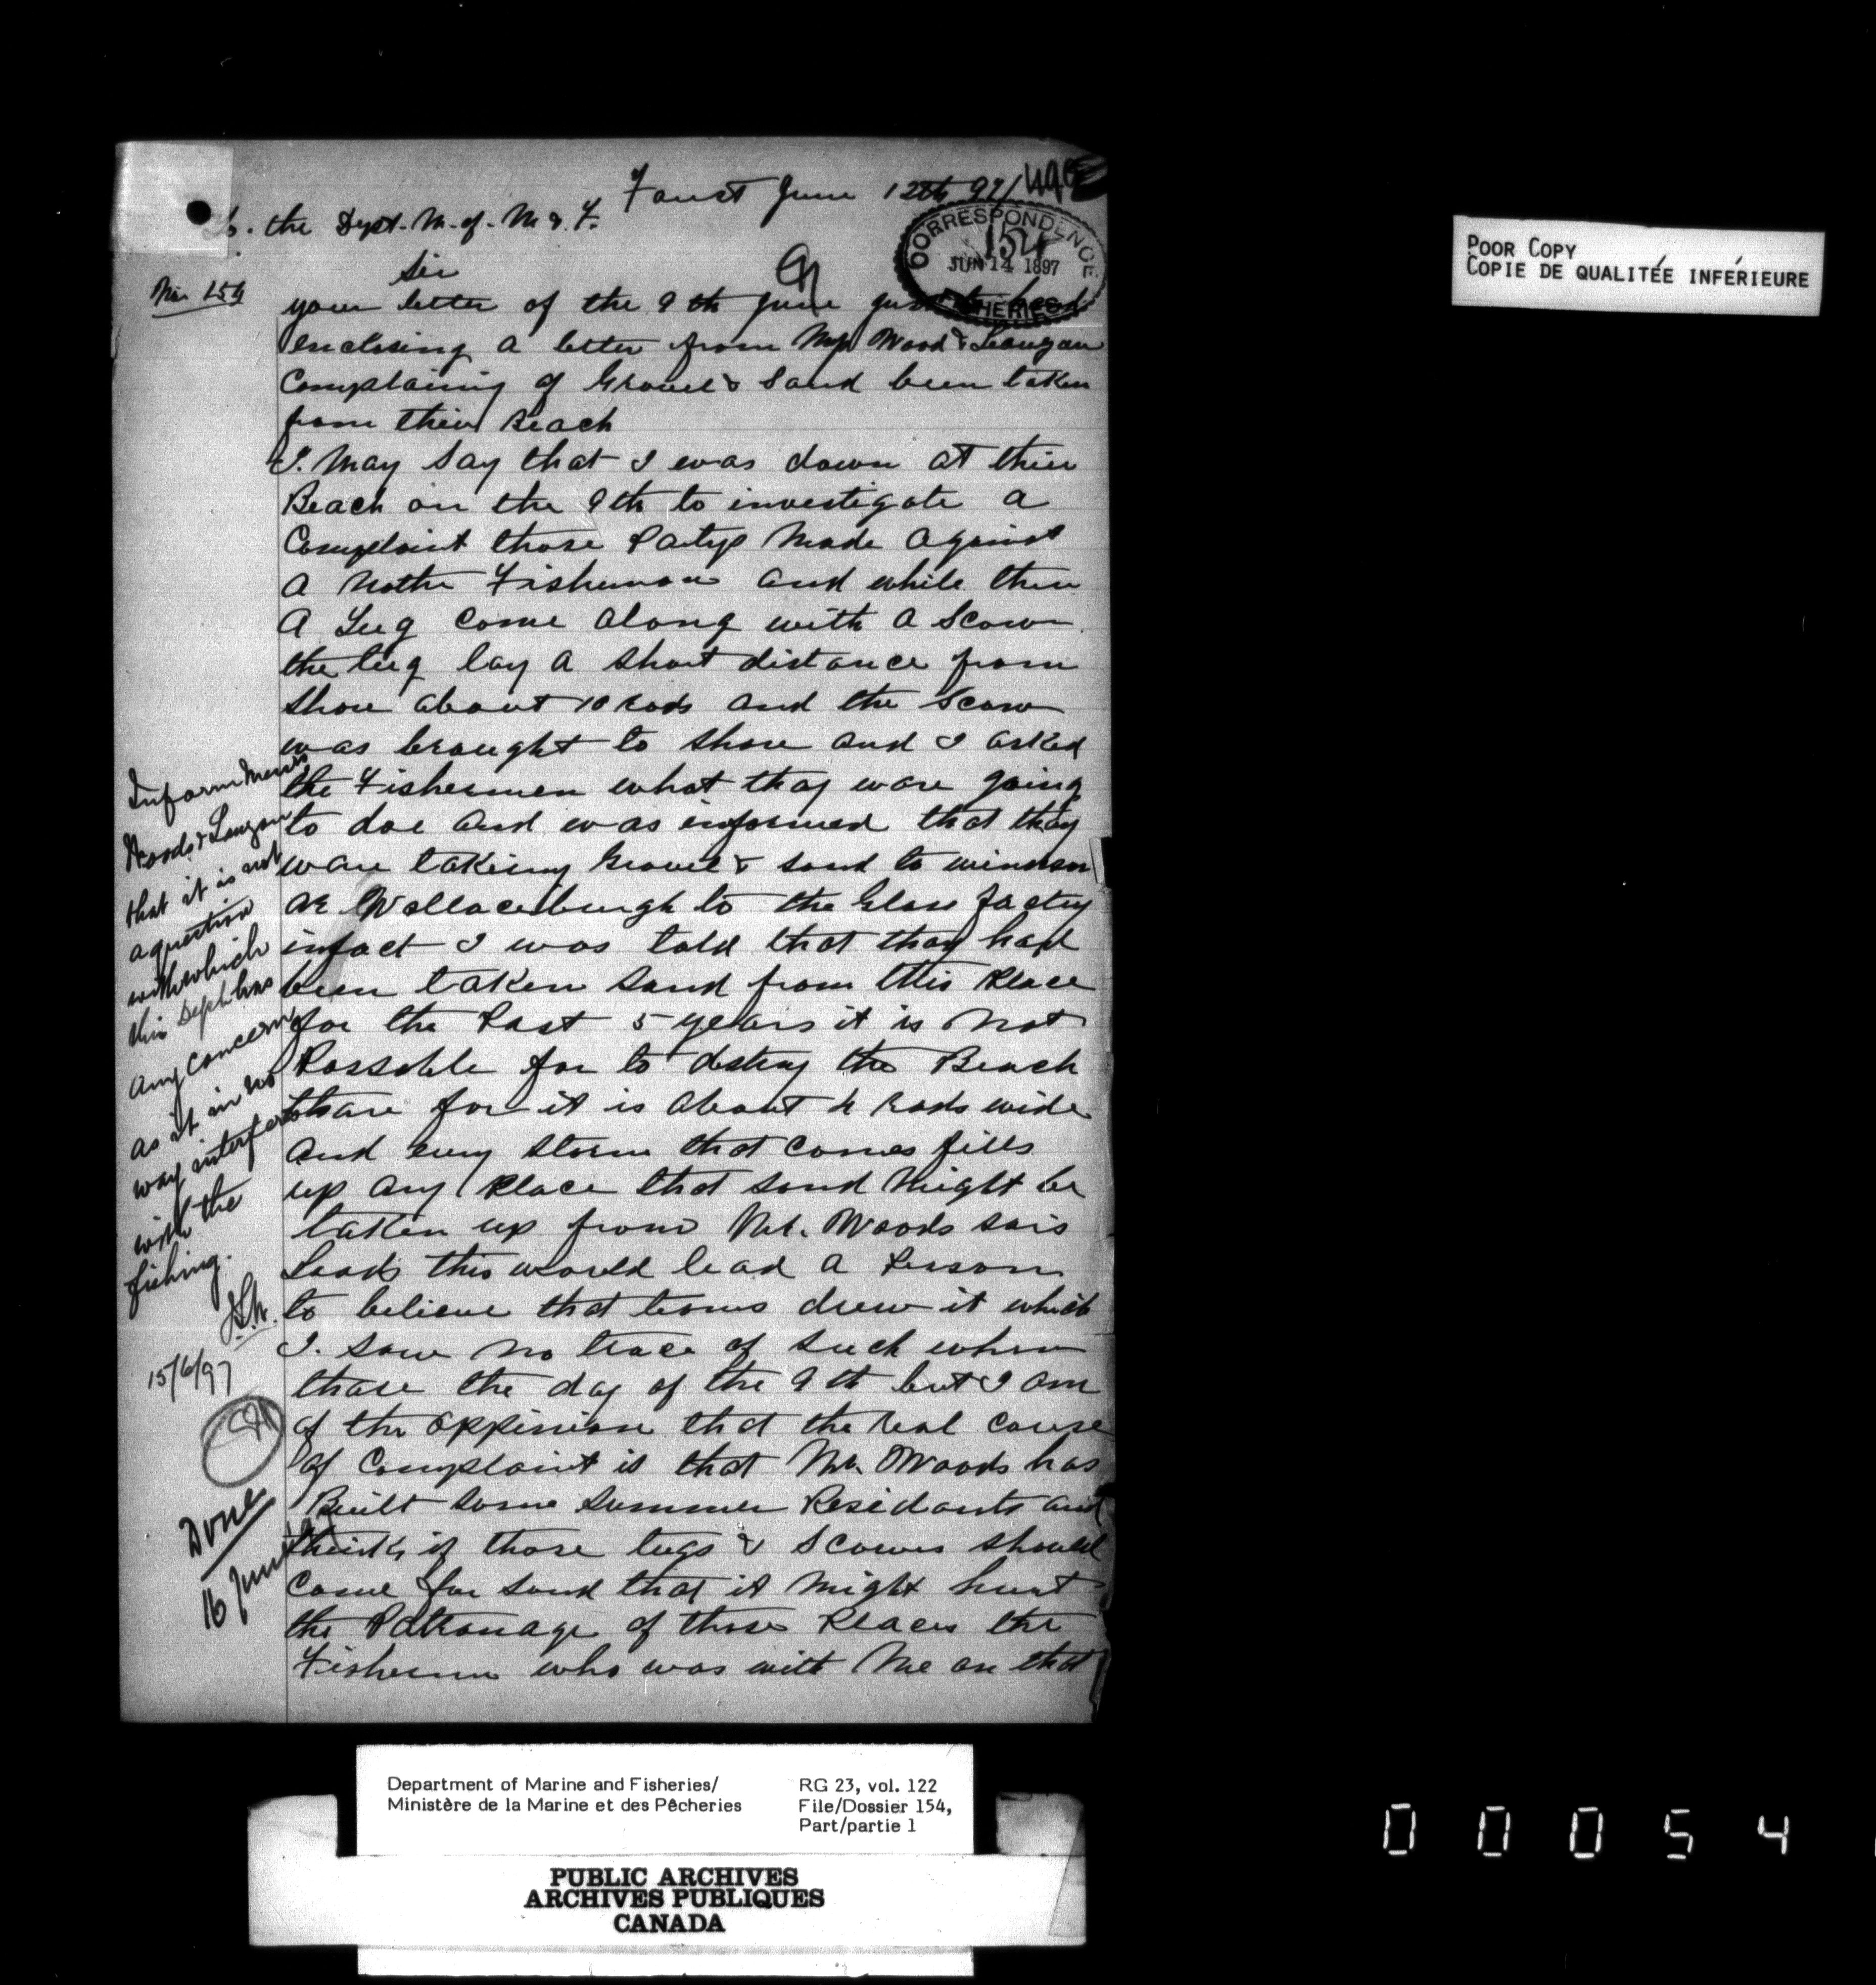 Foust June 12th 97/
To. the Dept. M. of. M & F.
CORRESPONDENCE
154
JUN 14 1897
FISHERIES
Sir
No 154
your letter of the 9th June just to hand
enclosing a letter from Mr Wood &
Complaining of Gravel & Sand been taken
from their Beach
I. May Say that I was down at thier
Beach on the 9th to investigate a
Complaint those Partys Made against
a nother Fisherman and while there
a Tug come along with a Scow
the tug lay a short distance from
shore about 10 rods and the Scow
was brought to shore and I asked
the Fishermen what thay ware going
to doe and was informed that thay
ware takeing Gravel & sand to windsor
or Wallaceburgh to the Glass factry
infact I was told that thay had
been taken sand from this Place
for the Past 5 years it is not
Possoble for to destroy the Beach
thare for it is about 4 rods wide
and every storm that comes fills
up any Place that sand might be
taken up from Mr. Woods sais
Loads this would lead a Person
to believe that teams drew it which
I. saw no trace of such when
thare the day of the 9th but I am
of the oppinion that the real cause
of Complaint is that Mr. Woods has
Built some summer Residants and
thinks if those tugs & scows should
come for sand that it might hurt
the Patronage of those Places the
Fisherman who was with me on that
Inform Messrs
Woods &
that it is not
a question
with which
this Dept has
any concern
as it in no
way interferes
with the
fishing.
15/6/97
Done
16 June
POOR COPY
COPIE DE QUALITÉE INFÉRIEURE
Department of Marine and Fisheries/
Ministère de la Marine et des Pêcheries
RG 23, vol. 122
File/Dossier 154,
Part/partie 1
PUBLIC ARCHIVES
ARCHIVES PUBLIQUES
CANADA
00054